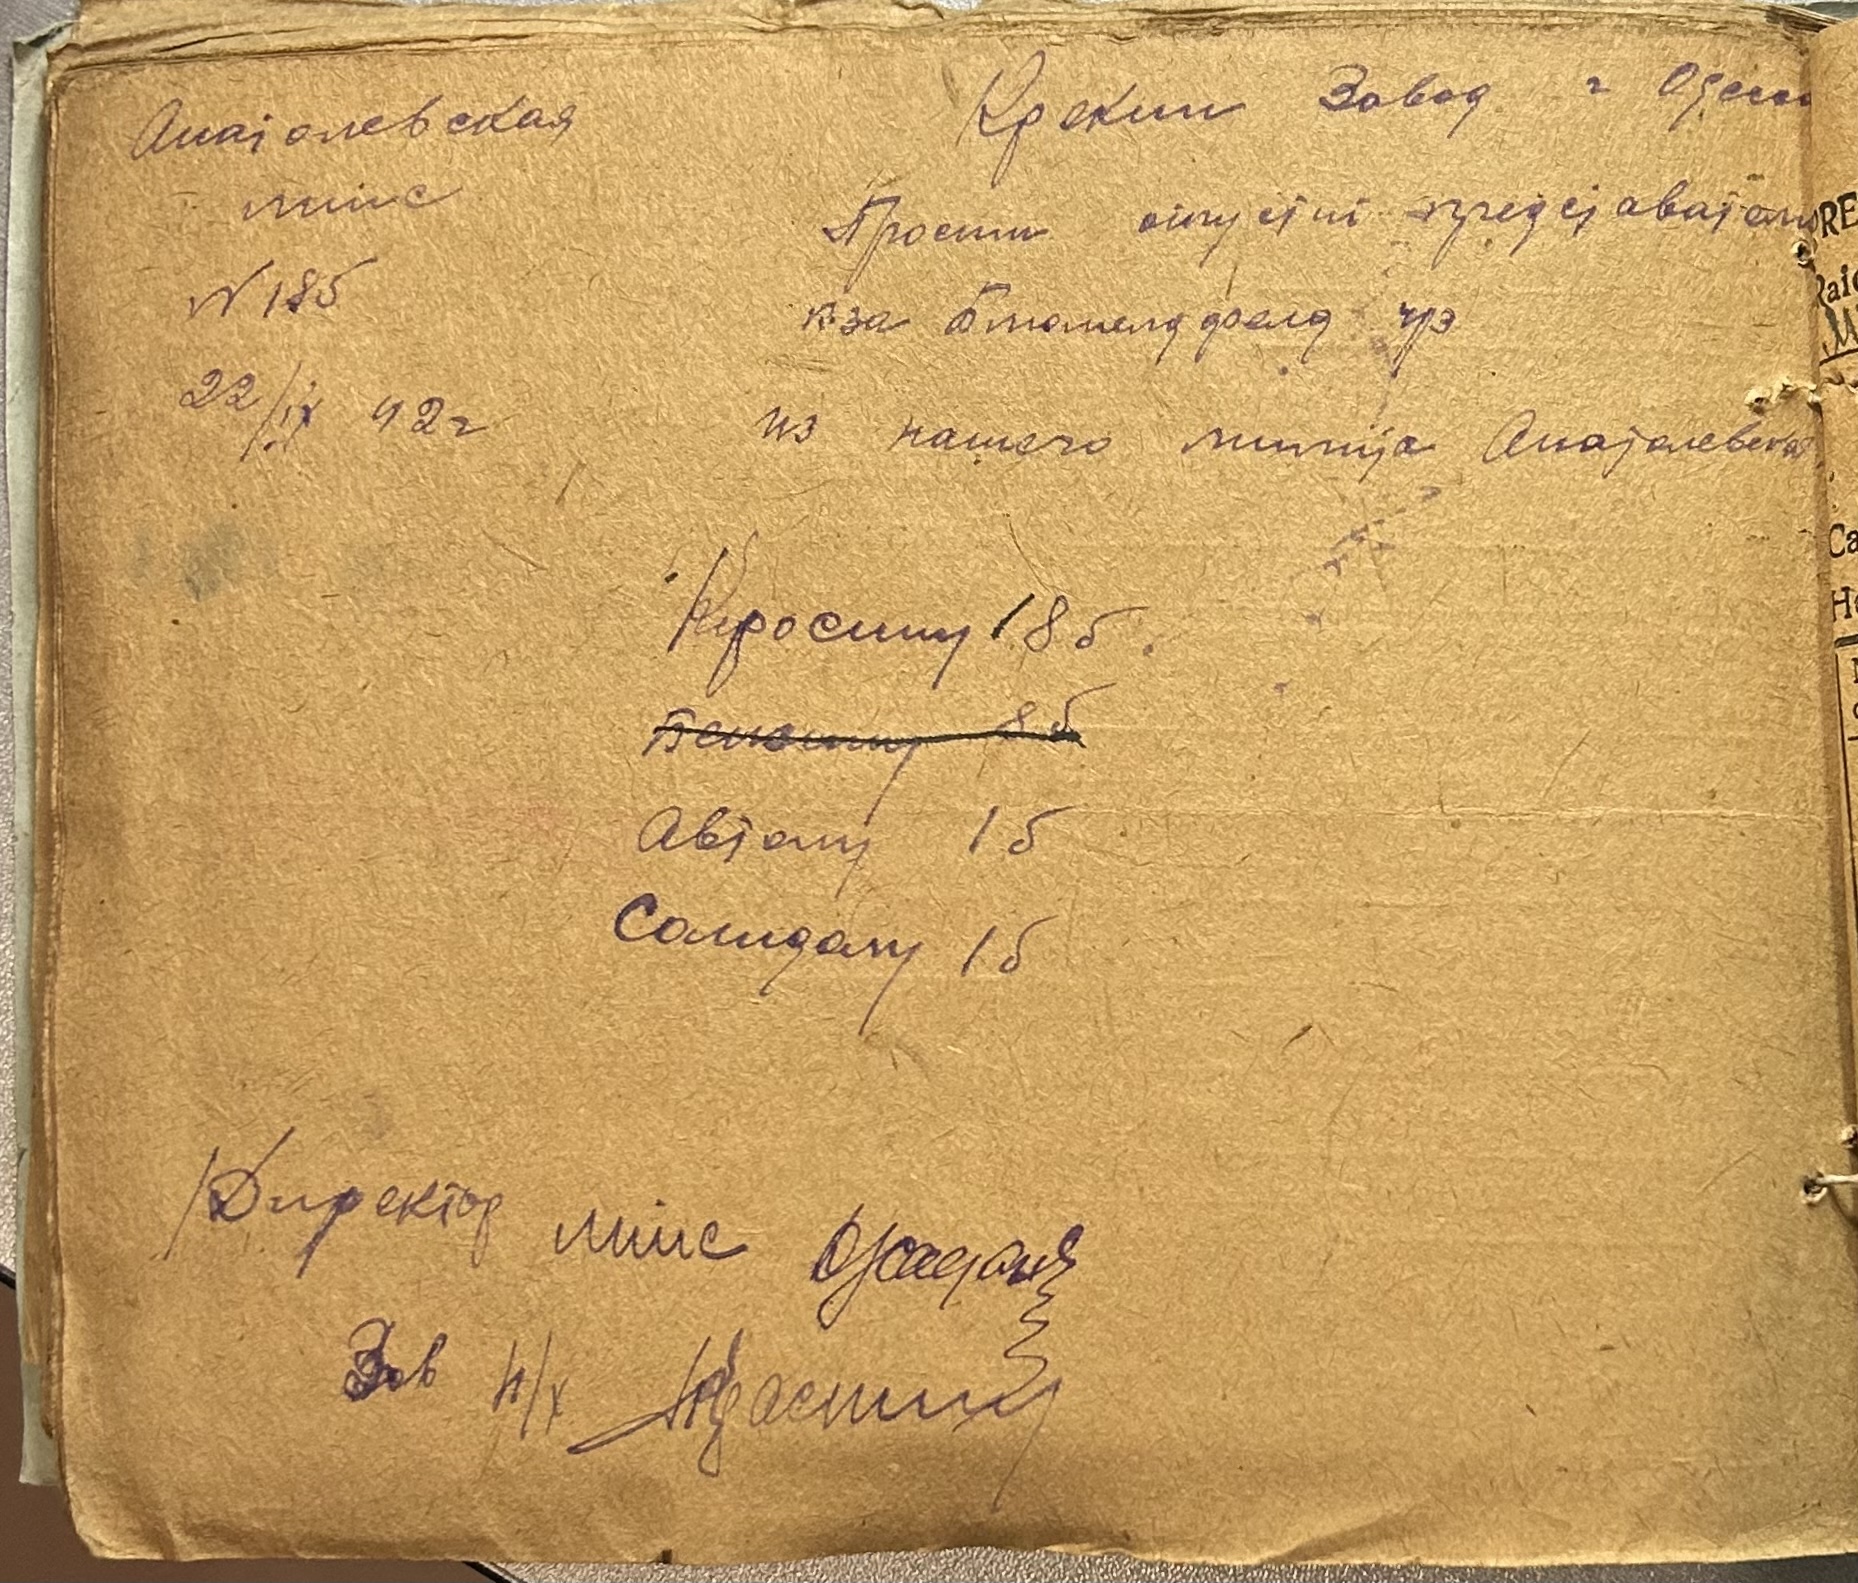 Анатолевская
мтмс
N 185
22/IX 42 г
Крекин Завод г Одесса
Просим отпустит представател
к-за Блюменфелд
из нашего лимита Анатолевская
Киросину 18 б.
Бензину 8 б
Автолу 1 б
Солидолу 1 б
Директор мтмс
Зав н/х
RE
Raio
Ca